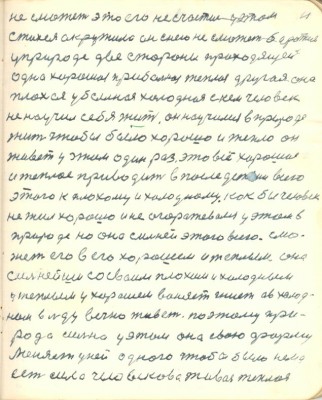 не сможет это его не счастие у этом
стихся окружило он силою не сможет б
у природе две стороны приходящей
одна хорошая прибольная теплая другая она
плохая убольная холодная с кем человек
не научил себя жить, он научился в природе
жить чтобы было хорошо и тепло он
живет у этом один раз. это всё хорошее
и теплое приводит в последствие всего
этого к плохому и холодному. как бы человек
не жил хорошо и не огораживался у этом в
природе но она сильней этого всего. смо-
жет его в его хорошем и теплым. она
сильнейшим со своим плохим и холодным
у теплым у хорошем воняет гниет а в холод-
ном в льду вечно живет. поэтому при-
рода сильна у этом она свою форму
меняет у ней одного чтобы было нема
ест сила человекова живая теплая